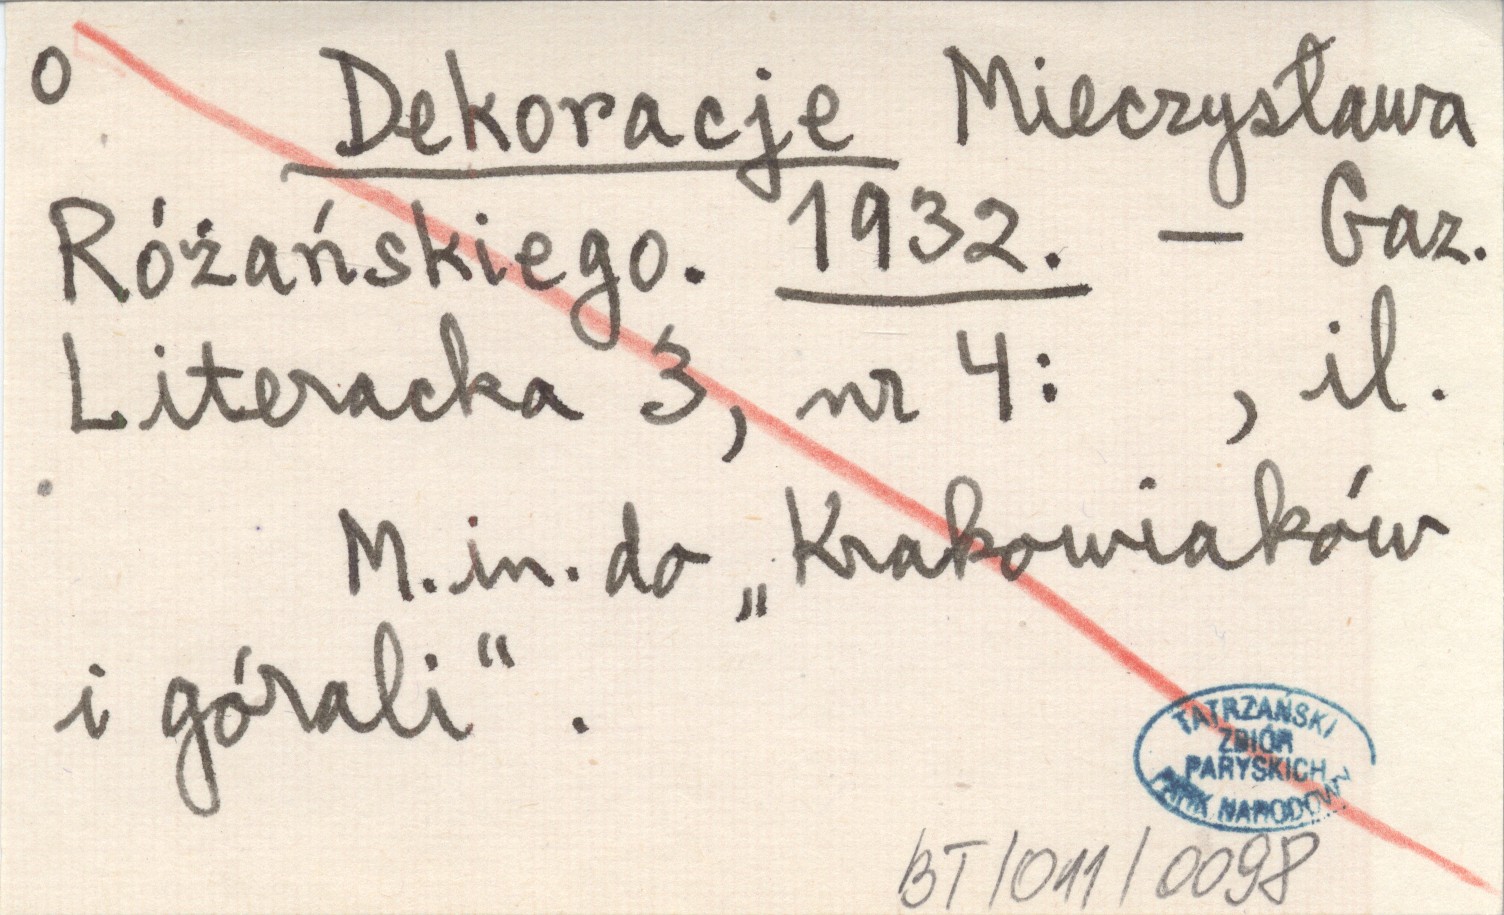 o Dekoracje Mieczysława
Różańskiego. 1932. — Gaz.
Literacka 3, nr 4: , il.
M.in. do „Krakowiaków
i górali“.
TATRZAŃSKI
ZBIÓR
PARYSKICH
PARK NARODOWY
BT/011/0098